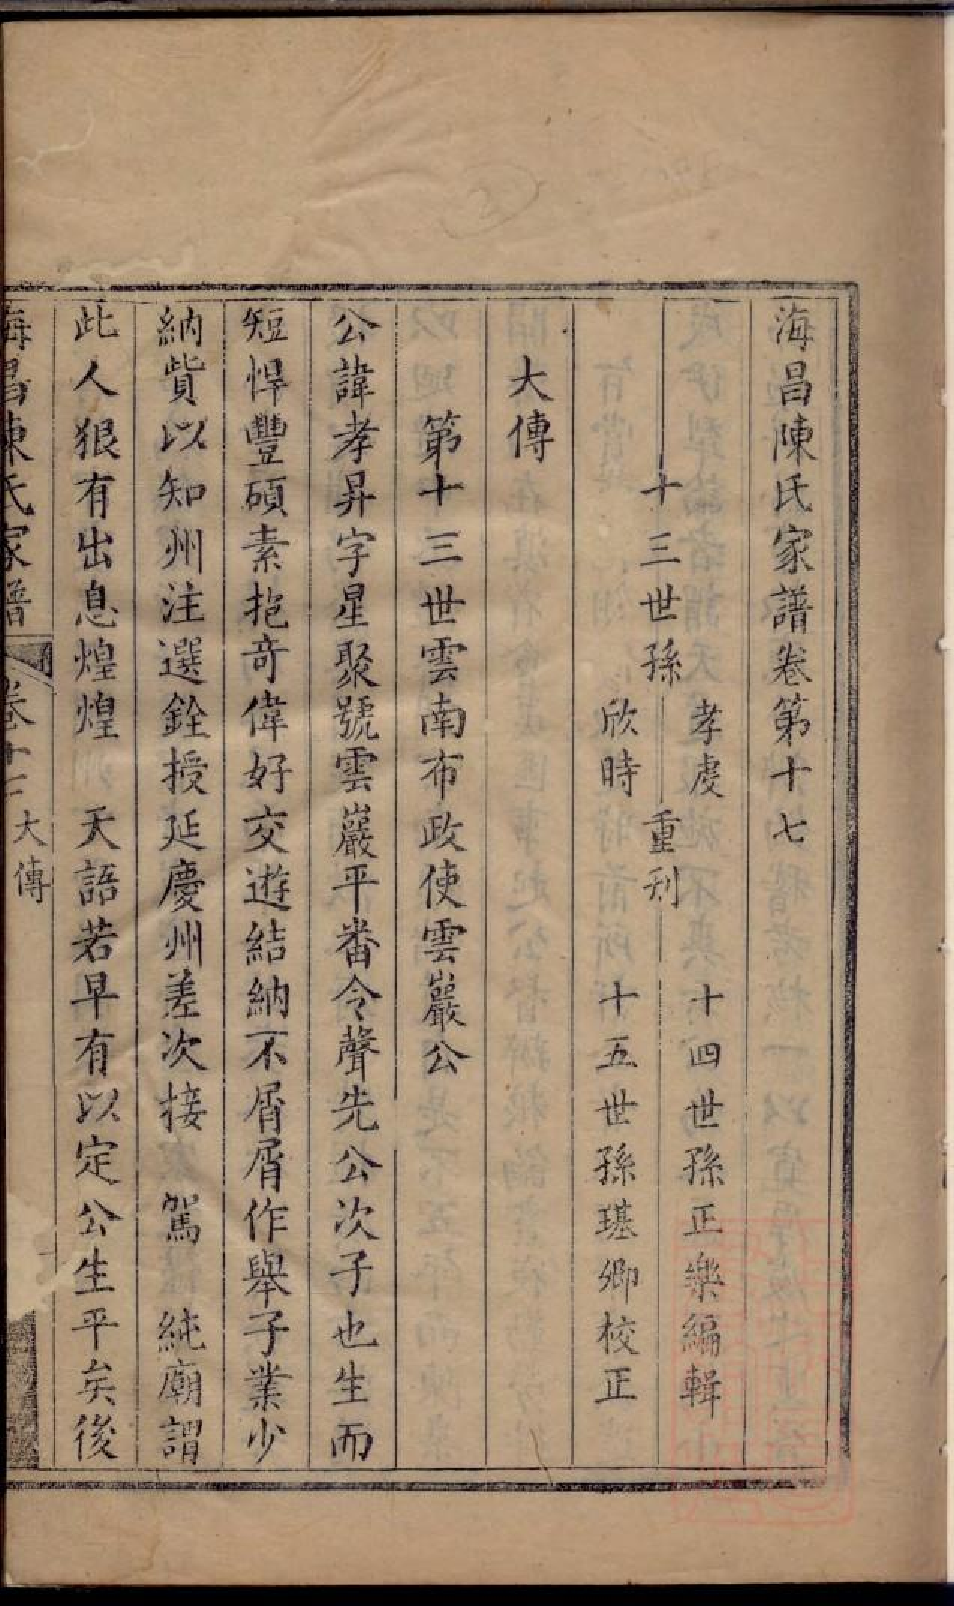 海昌陳氏家譜卷第十七
十三世孫 孝虔 欣時 重刋 十四世孫正樂編輯
十五世孫瑾卿校正
大傳
第十三世雲南布政使雲巖公
公諱孝昇字星聚號雲巖平番令聲先公次子也生而
短悍豐碩素抱奇偉好交遊結納不屑屑作舉子業少
納貲以知州注選銓授延慶州差次接 駕 純廟謂
此人狠有出息煌煌 天語若早有以定公生平矣後
海昌陳氏家譜 卷十七 大傳